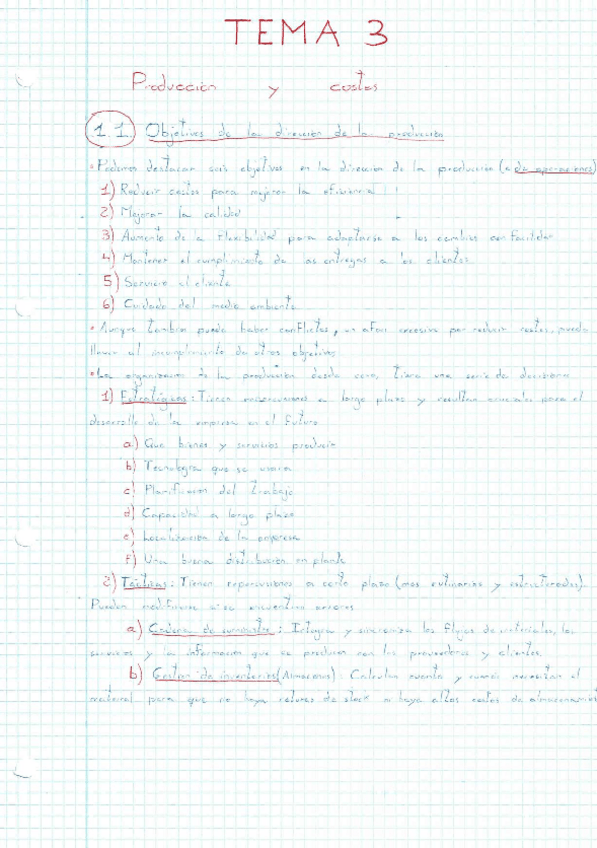 TEMA 3
Producción y costes
1.1. Objetivos de la dirección de la producción
• Podemos destacar seis objetivos en la dirección de la producción (o de operaciones)
1) Reducir costes para mejorar la eficiencia
2) Mejorar la calidad
3) Aumento de la flexibilidad para adaptarse a los cambios con facilidad
4) Mantener el cumplimiento de las entregas a los clientes
5) Servicio al cliente
6) Cuidado del medio ambiente
• Aunque también puede haber conflictos, un afán excesivo por reducir costes, puede
llevar al incumplimiento de otros objetivos
• La organización de la producción desde cero, tiene una serie de decisiones
1) Estratégicas: Tienen repercusiones a largo plazo y resultan cruciales para el
desarrollo de la empresa en el futuro
a) Que bienes y servicios producir
b) Tecnología que se usara
c) Planificación del trabajo
d) Capacidad a largo plazo
e) Localización de la empresa
f) Una buena distribución en planta
2) Tácticas: Tienen repercusiones a corto plazo (mas rutinarias y estructuradas).
Pueden modificarse si se encuentran errores
a) Cadena de suministro: Integra y sincroniza los flujos de materiales, los
servicios y la información que se producen con los proveedores y clientes.
b) Gestion de inventarios (Almacenes): Calculan cuanto y cuando necesitan el
material para que no haya rotura de stock ni haya altos costes de almacenamiento